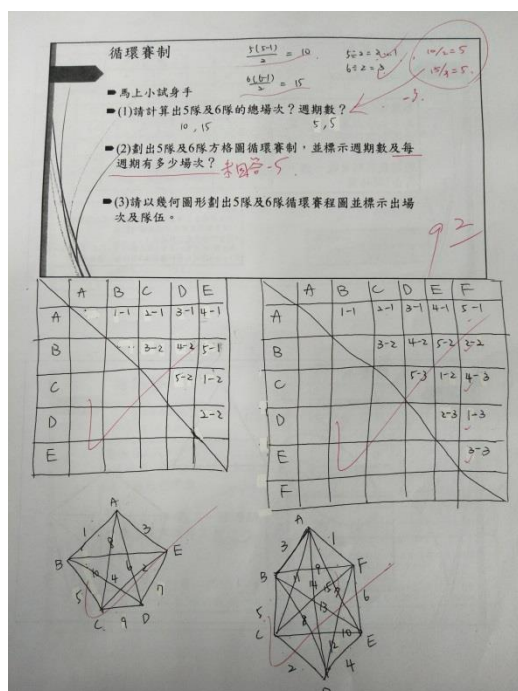 循環賽制
5(5-1)/2 = 10
6(6-1)/2 = 15
5÷2=2...1
6÷2=3
10/2=5
15/3=5
-3
馬上小試身手
(1)請計算出5隊及6隊的總場次？週期數？
10 , 15
5 , 5
(2)劃出5隊及6隊方格圖循環賽制，並標示週期數及每
週期有多少場次？
未回答 -5
(3)請以幾何圖形劃出5隊及6隊循環賽程圖並標示出場
次及隊伍。
92
A B C D E
A 1-1 2-1 3-1 4-1
B 3-2 4-2 5-1
C 5-2 1-2
D 2-2
E
A B C D E F
A 1-1 2-1 3-1 4-1 5-1
B 3-2 4-2 5-2 2-2
C 5-3 1-2 4-3
D 2-3 1-3
E 3-3
F
A
1 8 3
B E
10 4 6 2
5 7
C 9 D
A
3 1
B F
11 9
14 15 7
5 13 6
8
C 12 10 E
2 4
D